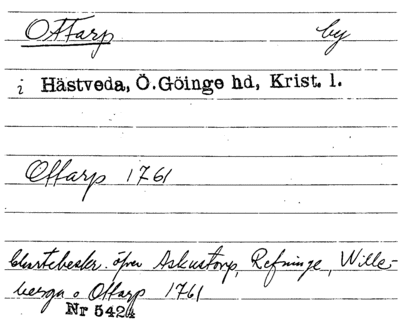 Ottarp by
i Hästveda, Ö.Göinge hd, Krist. l.
Ottarp 1761
Chartebeskr. öfver Askustorp, Refninge, Wille-
berga o Ottarp 1761
Nr 542